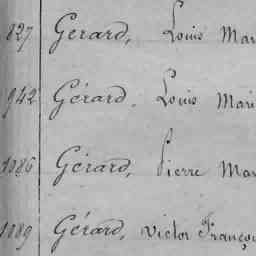 827 Gerard, Louis Mari
942 Gérard, Louis Mari
1086 Gérard, Pierre Mar
1089 Gérard, Victor Françoi